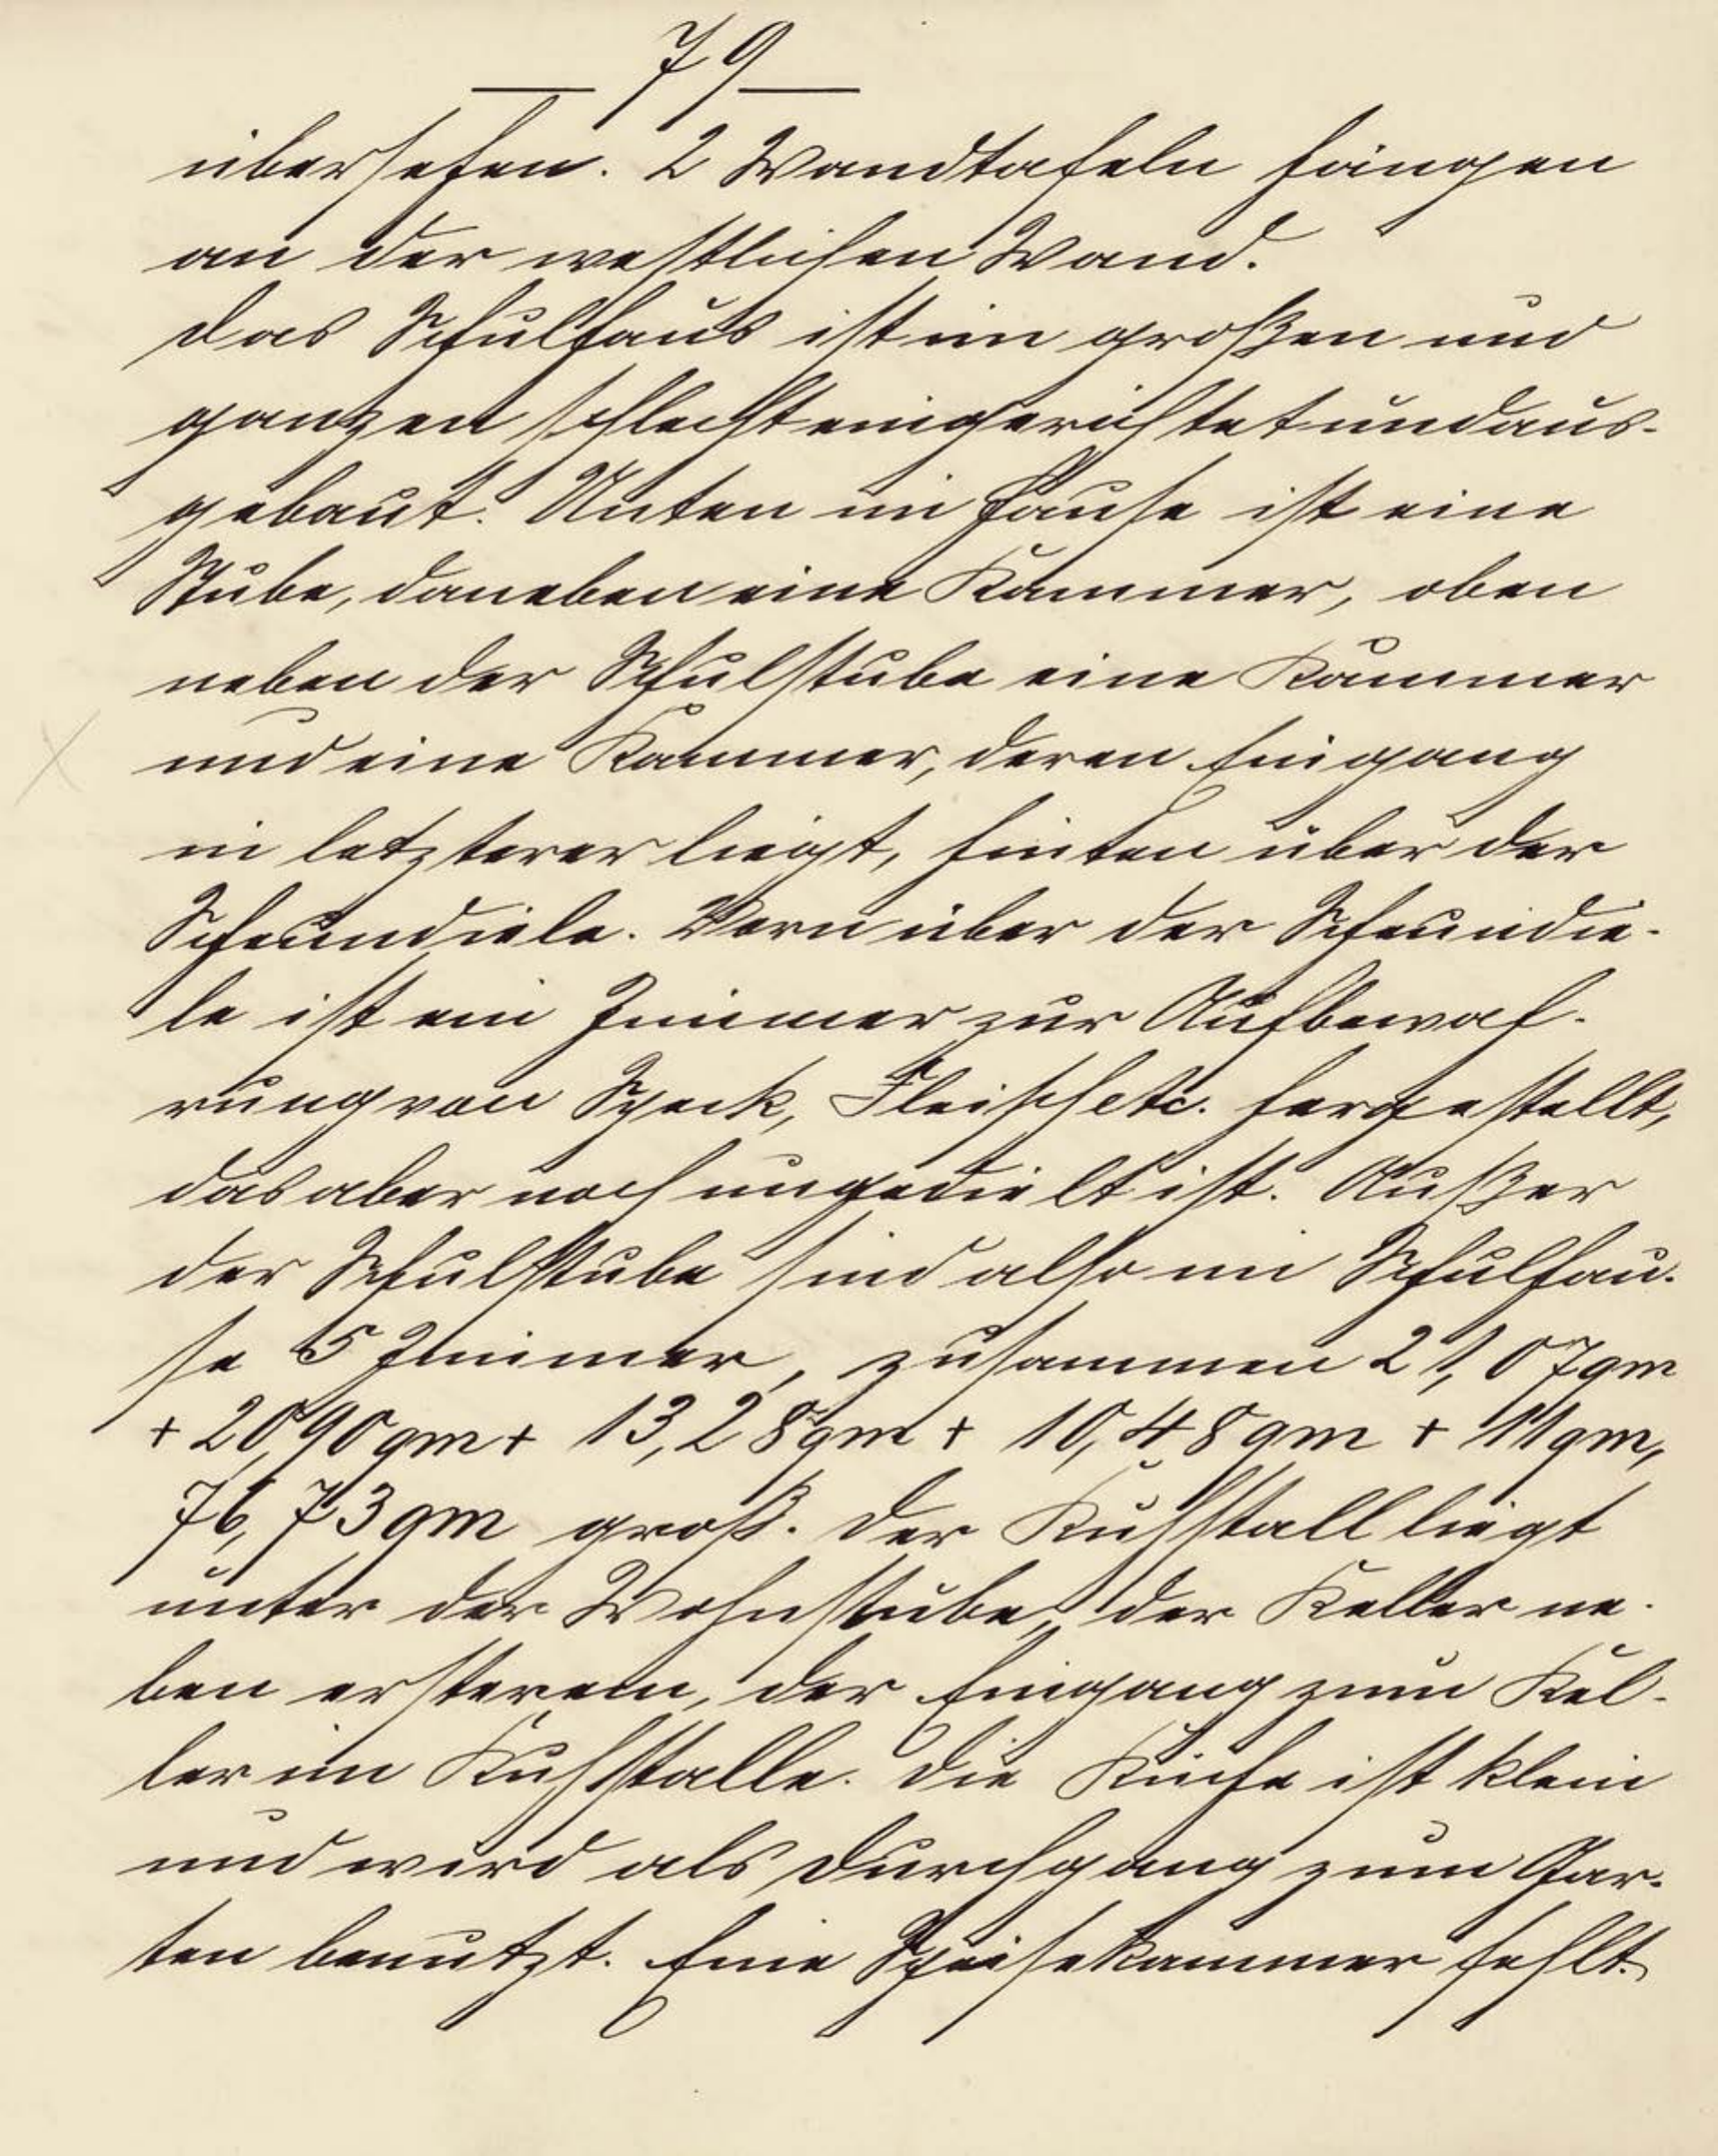 — 79 —
übersehen. 2 Wandtafeln hängen
an der westlichen Wand.
Das Schulhaus ist im großen und
ganzen schlecht eingerichtet und aus-
gebaut. Unten im Hause ist eine
Stube, daneben eine Kammer, oben
neben der Schulstube eine Kammer
und eine Kammer, deren Eingang
in letzterer liegt, hinten über der
Scheundiele. Vorn über der Scheundie-
le ist ein Zimmer zur Aufbewah-
rung von Speck, Fleisch etc. hergestellt,
das aber noch ungedielt ist. Außer
der Schulstube sind also im Schulhau-
se 5 Zimmer, zusammen 21,07qm
+ 20,90qm + 13,28qm + 10,48qm + 11qm,
76,73qm groß. Der Kuhstall liegt
unter der Wohnstube, der Keller ne-
ben ersterem, der Eingang zum Kel-
ler im Kuhstalle. Die Küche ist klein
und wird als Durchgang zum Gar-
ten benutzt. Eine Speisekammer fehlt.